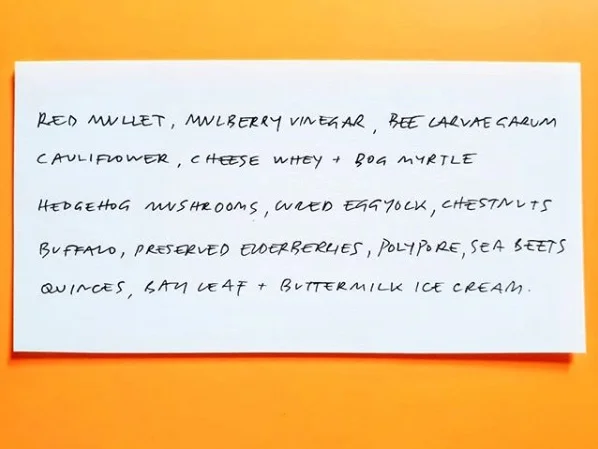 RED MULLET, MULBERRY VINEGAR, BEE LARVAE GARUM
CAULIFLOWER, CHEESE WHEY + BOG MYRTLE
HEDGEHOG MUSHROOMS, CURED EGGYOLK, CHESTNUTS
BUFFALO, PRESERVED ELDERBERRIES, POLYPORE, SEA BEETS
QUINCES, BAY LEAF + BUTTERMILK ICE CREAM.